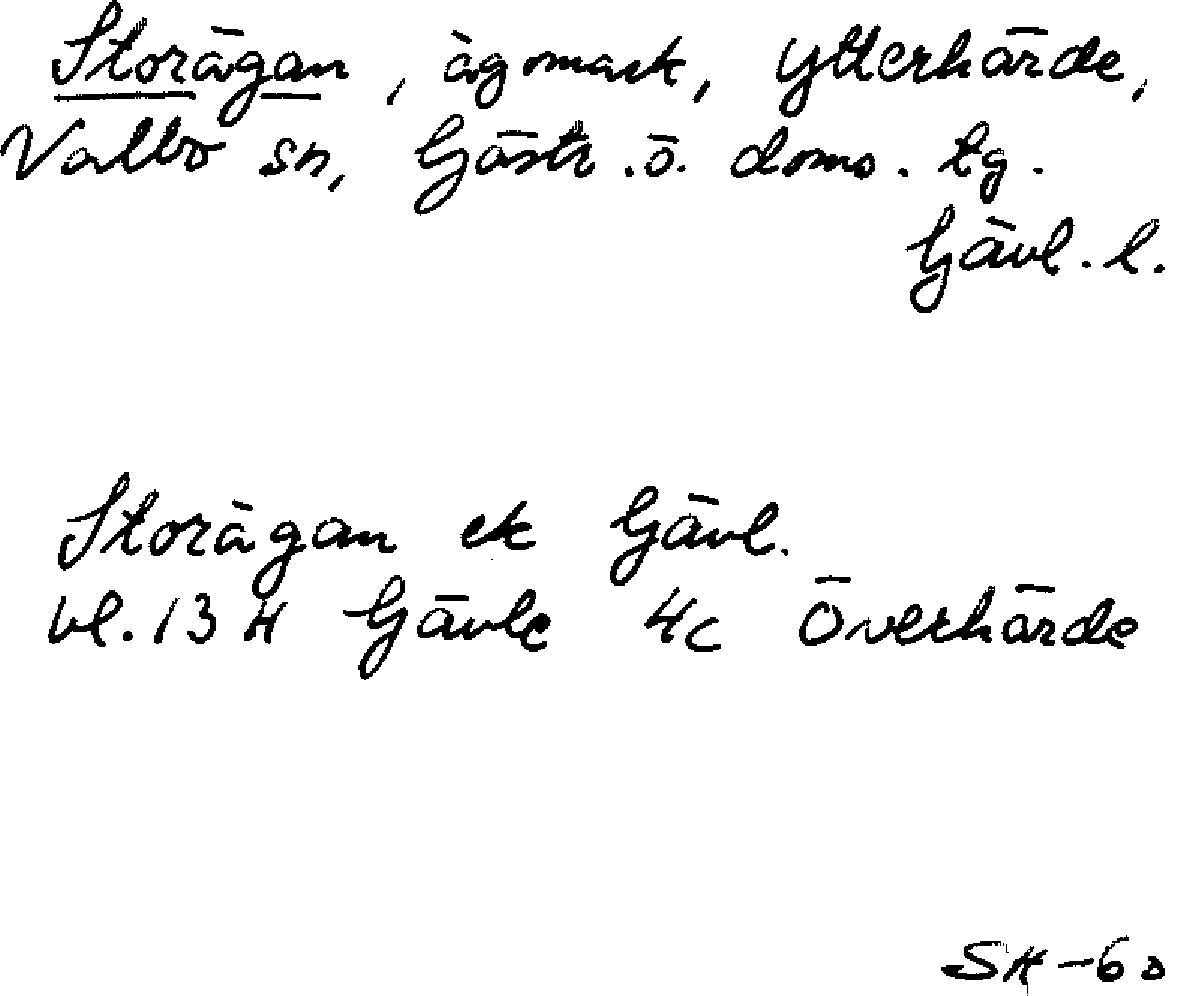 Storägan, ägomark, Ytterhärde,
Valbo sn, Gästr. ö. doms. tg.
Gävl. l.
Storägan ek Gävl.
bl. 13 H Gävle 4c Överhärde
SH-60